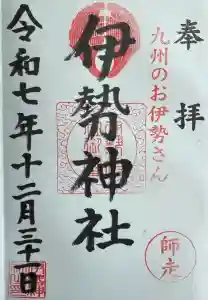 奉拝
九州のお伊勢さん
伊勢神社
師走
令和七年十二月三十一日